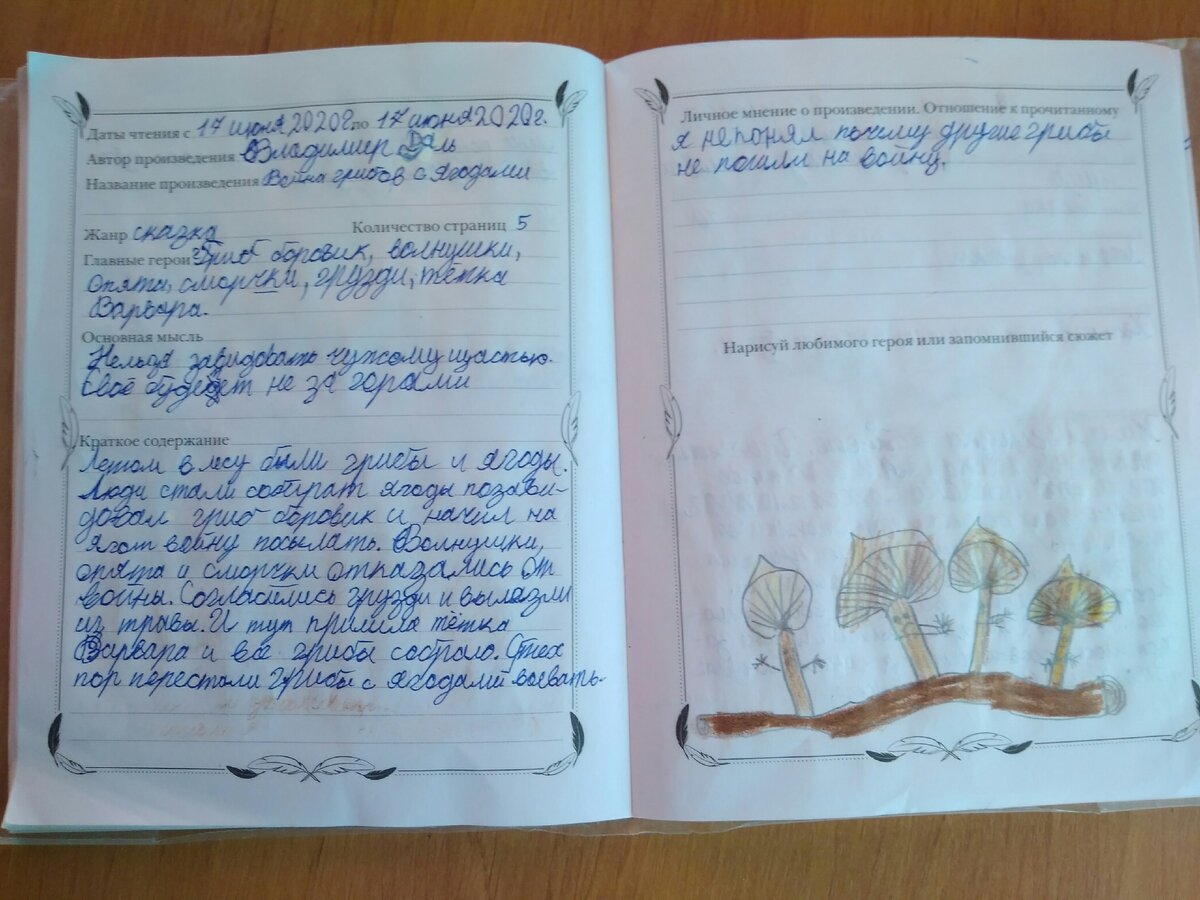 Даты чтения с 17 июня 2020г. по 17 июня 2020г.
Автор произведения Владимиер Даль
Название произведения Война грибов с ягодами
Жанр сказка Количество страниц 5
Главные герои Гриб боровик, волнушки,
опята, сморчки, грузди, тётка
Варвара.
Основная мысль
Нельзя завидовать чужому щастью.
Своё будет не за горами
Краткое содержание
Летом в лесу были грибы и ягоды.
Люди стали собират ягоды позави-
довал гриб боровик и начил на
ягот войну посылать. Волнушки,
опята и сморчки отказались от
войны. Согласились грузди и вылазли
из травы. И тут пришла тётка
Варвара и все грибы собрало. Стех
пор перестали грибы с ягодами воевать.
Личное мнение о произведении. Отношение к прочитанному
я непонял почему другие грибы
не пошли на войну.
Нарисуй любимого героя или запомнившийся сюжет